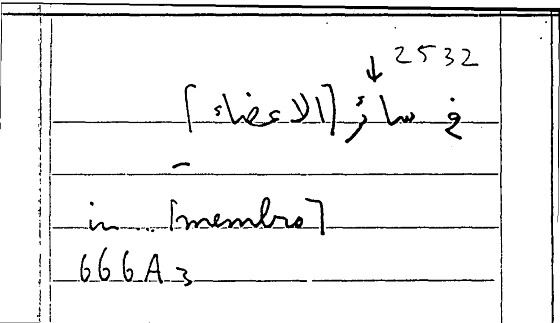 ↓ 2532
في سائر [الاعضاء]
–
in .. [membro]
666A3